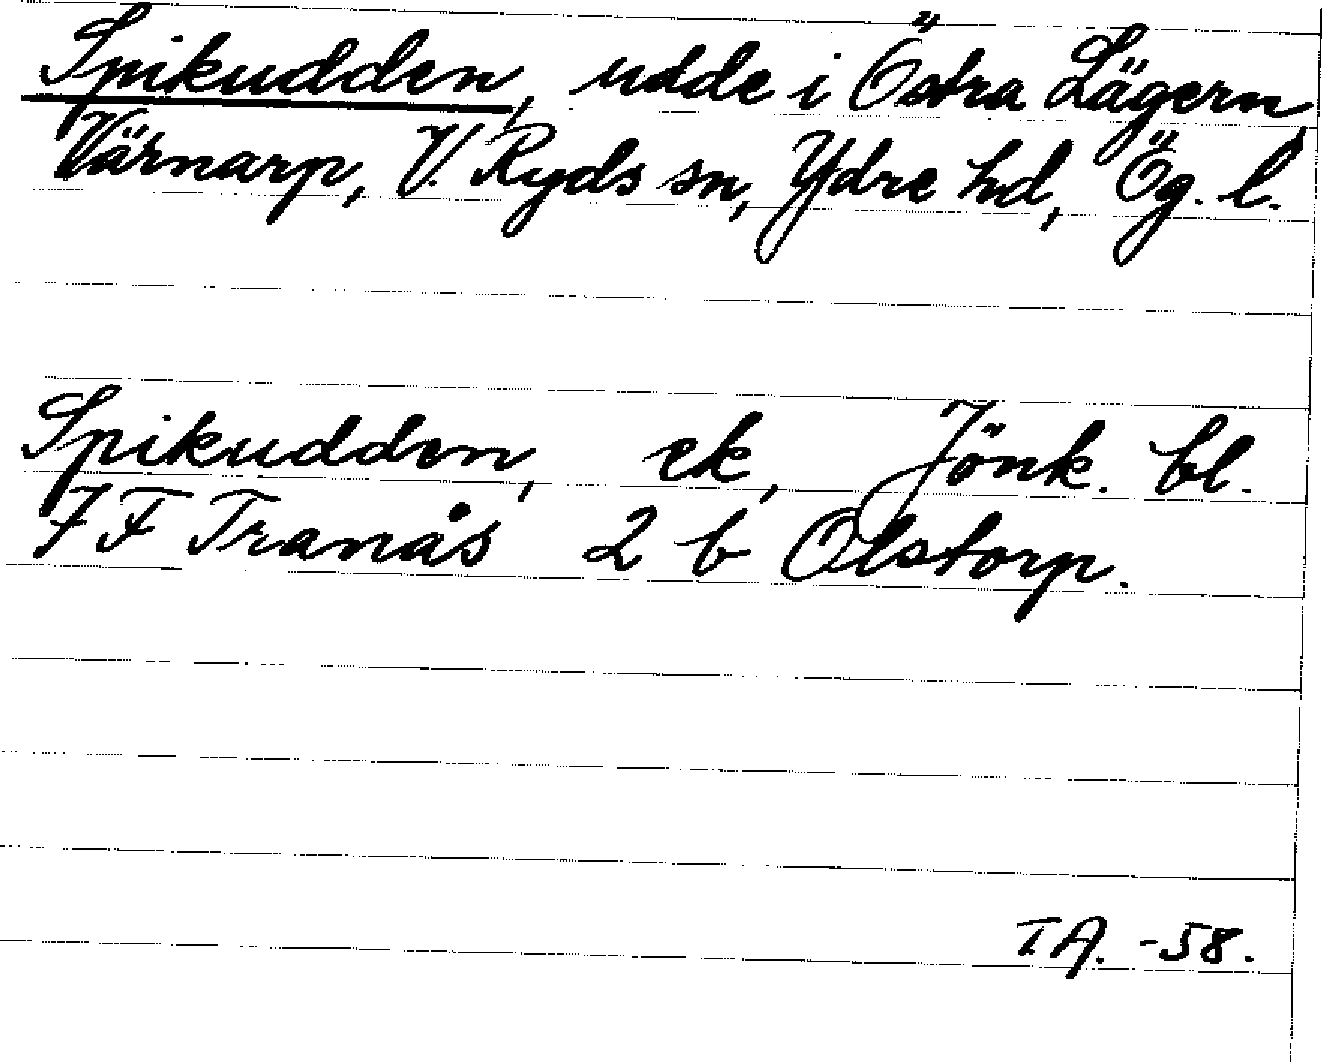 Spikudden, udde i Östra Lägern,
Värnarp, V. Ryds sn, Ydre hd, Ög. l.
Spikudden, ek, Jönk. bl.
7 F Tranås 2 b Olstorp.
T.A. -58.